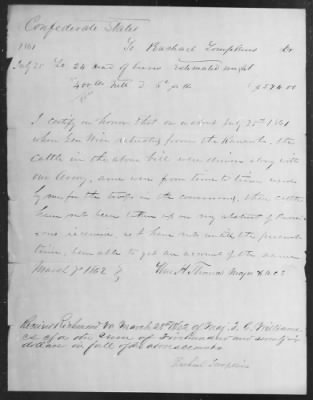 Confederate States
1861 To Rachael Tompkins Dr
July 25 To 24 head of beeves estimated weight
400 lbs nett @ 6¢ pr lb $576.00
I certify on honor that on or about July 25th 1861
when Gen Wise retreated from the Kanawha, the
cattle in the above bill were driven along with
our army, and were from time to time used
by me for the troops in the command, these cattle
have not been taken up on my abstract of provis-
ions received, as I have not until the present
time, been able to get an account of the same
March 7 1862 Wm. H. Thomas Major & A.C.S.
Received Richmond Va March 28th 1862 of Maj. J. C. Williams
the sum of Five hundred and seventy six
dollars in full of the above account
Rachael Tompkins